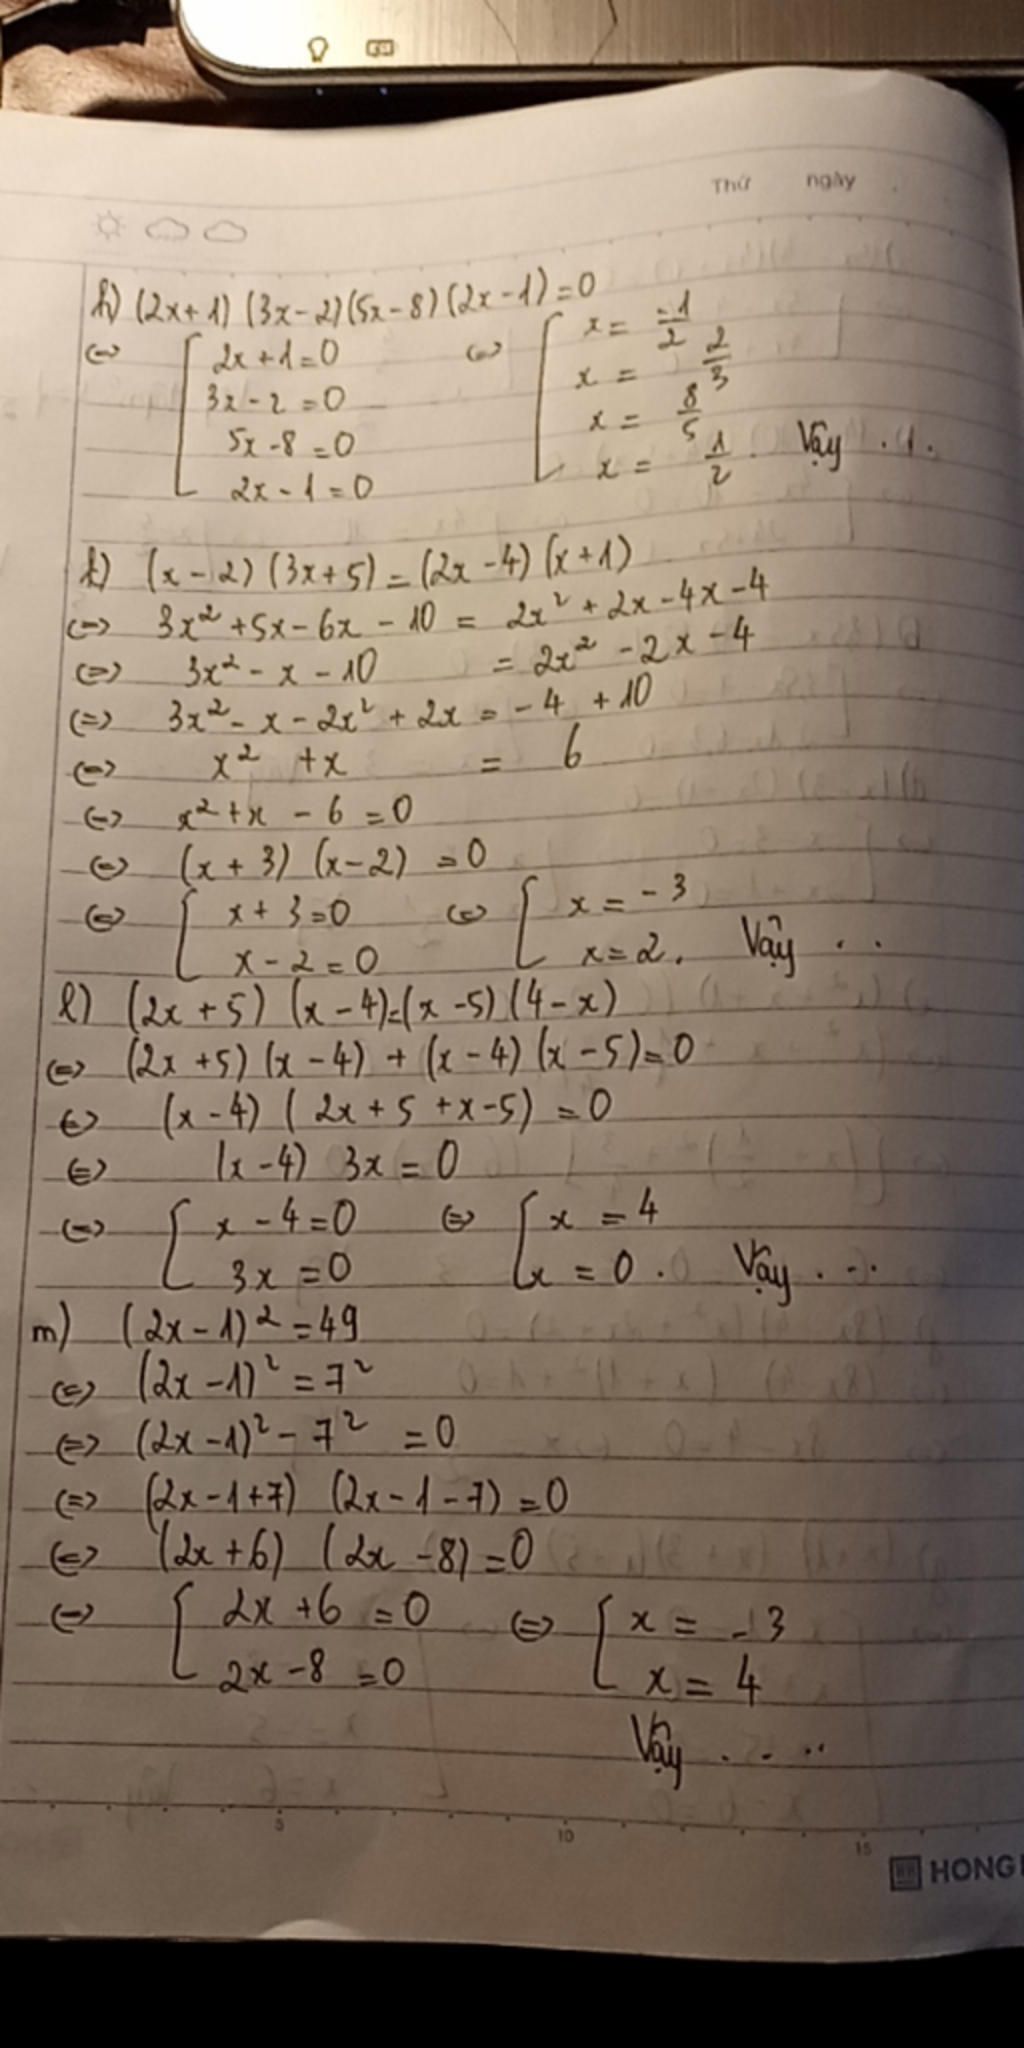 Thứ ngày
h) (2x+1) (3x-2)(5x-8)(2x-1)=0
<=> [ 2x+1=0 <=> [ x = -1/2
3x-2=0 x = 2/3
5x-8=0 x = 8/5
2x-1=0 x = 1/2. Vậy ...
k) (x-2)(3x+5)=(2x-4)(x+1)
<=> 3x²+5x-6x-10 = 2x²+2x-4x-4
<=> 3x²-x-10 = 2x²-2x-4
<=> 3x²-x-2x²+2x = -4+10
<=> x²+x = 6
<=> x²+x-6=0
<=> (x+3)(x-2)=0
<=> [ x+3=0 <=> [ x=-3
x-2=0 x=2. Vậy ...
l) (2x+5)(x-4)=(x-5)(4-x)
<=> (2x+5)(x-4)+(x-4)(x-5)=0
<=> (x-4)(2x+5+x-5)=0
<=> (x-4) 3x=0
<=> [ x-4=0 <=> [ x=4
3x=0 x=0. Vậy ...
m) (2x-1)²=49
<=> (2x-1)²=7²
<=> (2x-1)²-7²=0
<=> (2x-1+7)(2x-1-7)=0
<=> (2x+6)(2x-8)=0
<=> [ 2x+6=0 <=> [ x=-3
2x-8=0 x=4
Vậy ....
5 10 15
HONG